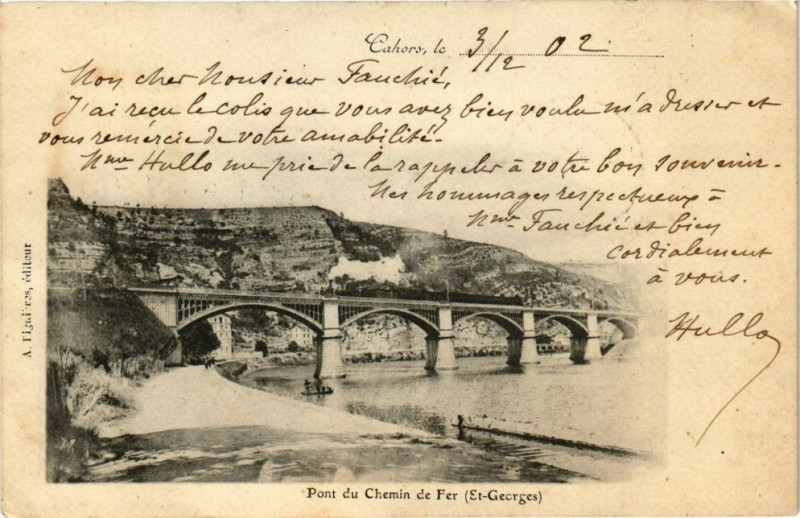 Cahors, le 3/12 02
Mon cher Monsieur Fauchié,
J'ai reçu le colis que vous avez bien voulu m'adresser et
vous remercie de votre amabilité.
Mme Hullo me prie de la rappeler à votre bon souvenir.
Mes hommages respectueux à
Mme Fauchié et bien
cordialement
à vous.
Hullo
A. Tignières, éditeur
Pont du Chemin de Fer (St-Georges)